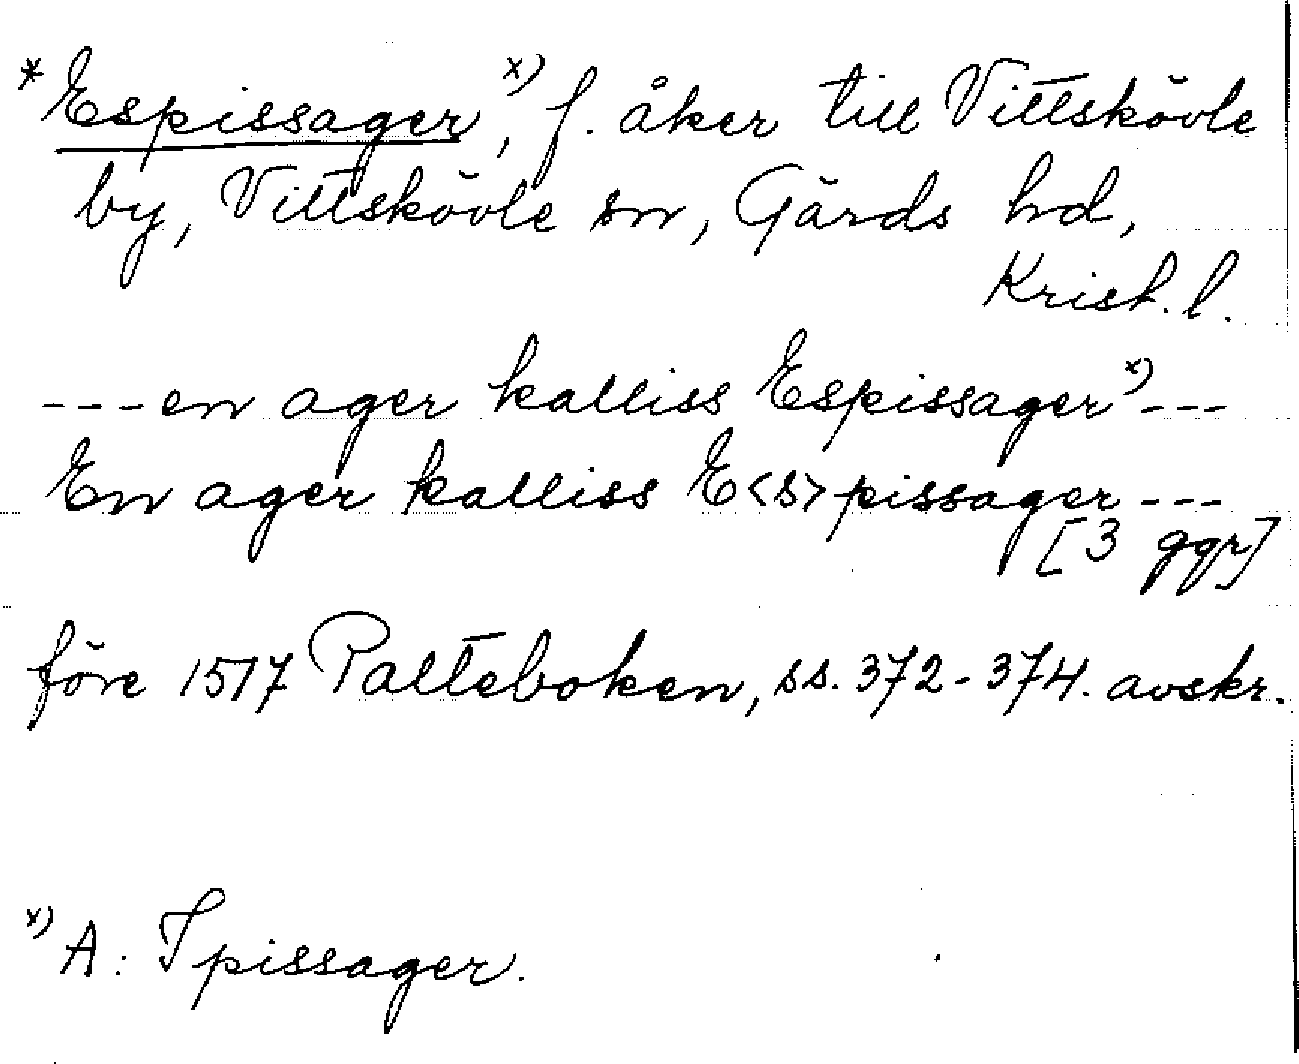 * Espissager,ˣ⁾ f. åker till Vittskövle
by, Vittskövle sn, Gärds hd,
Krist. l.
---en ager kalliss Espissagerˣ⁾---
En ager kalliss E<s>pissager---
[3 ggr]
före 1517 Palteboken, ss. 372-374. avskr.
ˣ⁾ A: Ipissager.